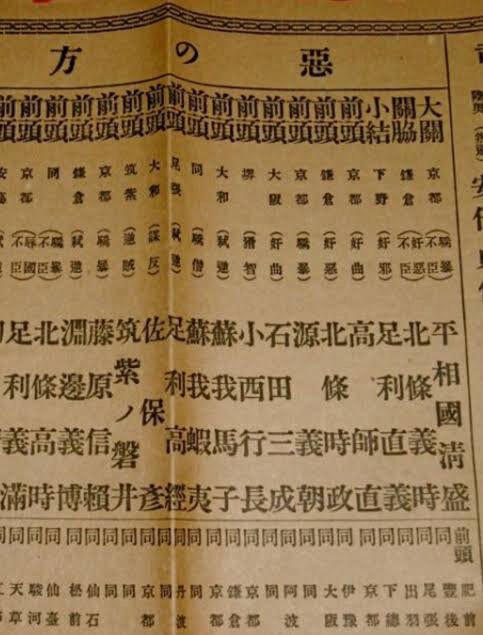 惡の方
大關 京都 (驕暴不臣) 平相國清盛
關脇 鎌倉 (奸惡不臣) 北條義時
小結 下野 (奸邪) 足利直義
前頭 京都 (奸曲) 高師直
前頭 鎌倉 (奸惡) 北條時政
前頭 京都 (驕暴) 源義朝
前頭 大阪 (奸曲) 石田三成
前頭 堺 (猾智) 小西行長
前頭 大和 (弑逆) 蘇我馬子
前頭 同 (驕僭) 蘇我蝦夷
前頭 尾張 (弑逆) 足利高經
前頭 大和 (謀反) 佐保彥
前頭 筑紫 (逆賊) 筑紫ノ磐井
前頭 京都 (驕暴) 藤原信賴
前頭 鎌倉 (弑逆) 淵邊義博
前頭 同 (驕暴不臣) 北條高時
前頭 京都 (辱國不臣) 足利義滿
前頭 肥前
同 豐後
同 尾張
同 出羽
同 下總
同 京都
同 伊豫
同 大阪
同 同
同 阿波
同 同
同 京都
同 鎌倉
同 京都
同 同
同 丹波
同 同
同 京都
同 同
同 同
同 仙石
同 松前
同 仙臺
同 駿河
同 天草